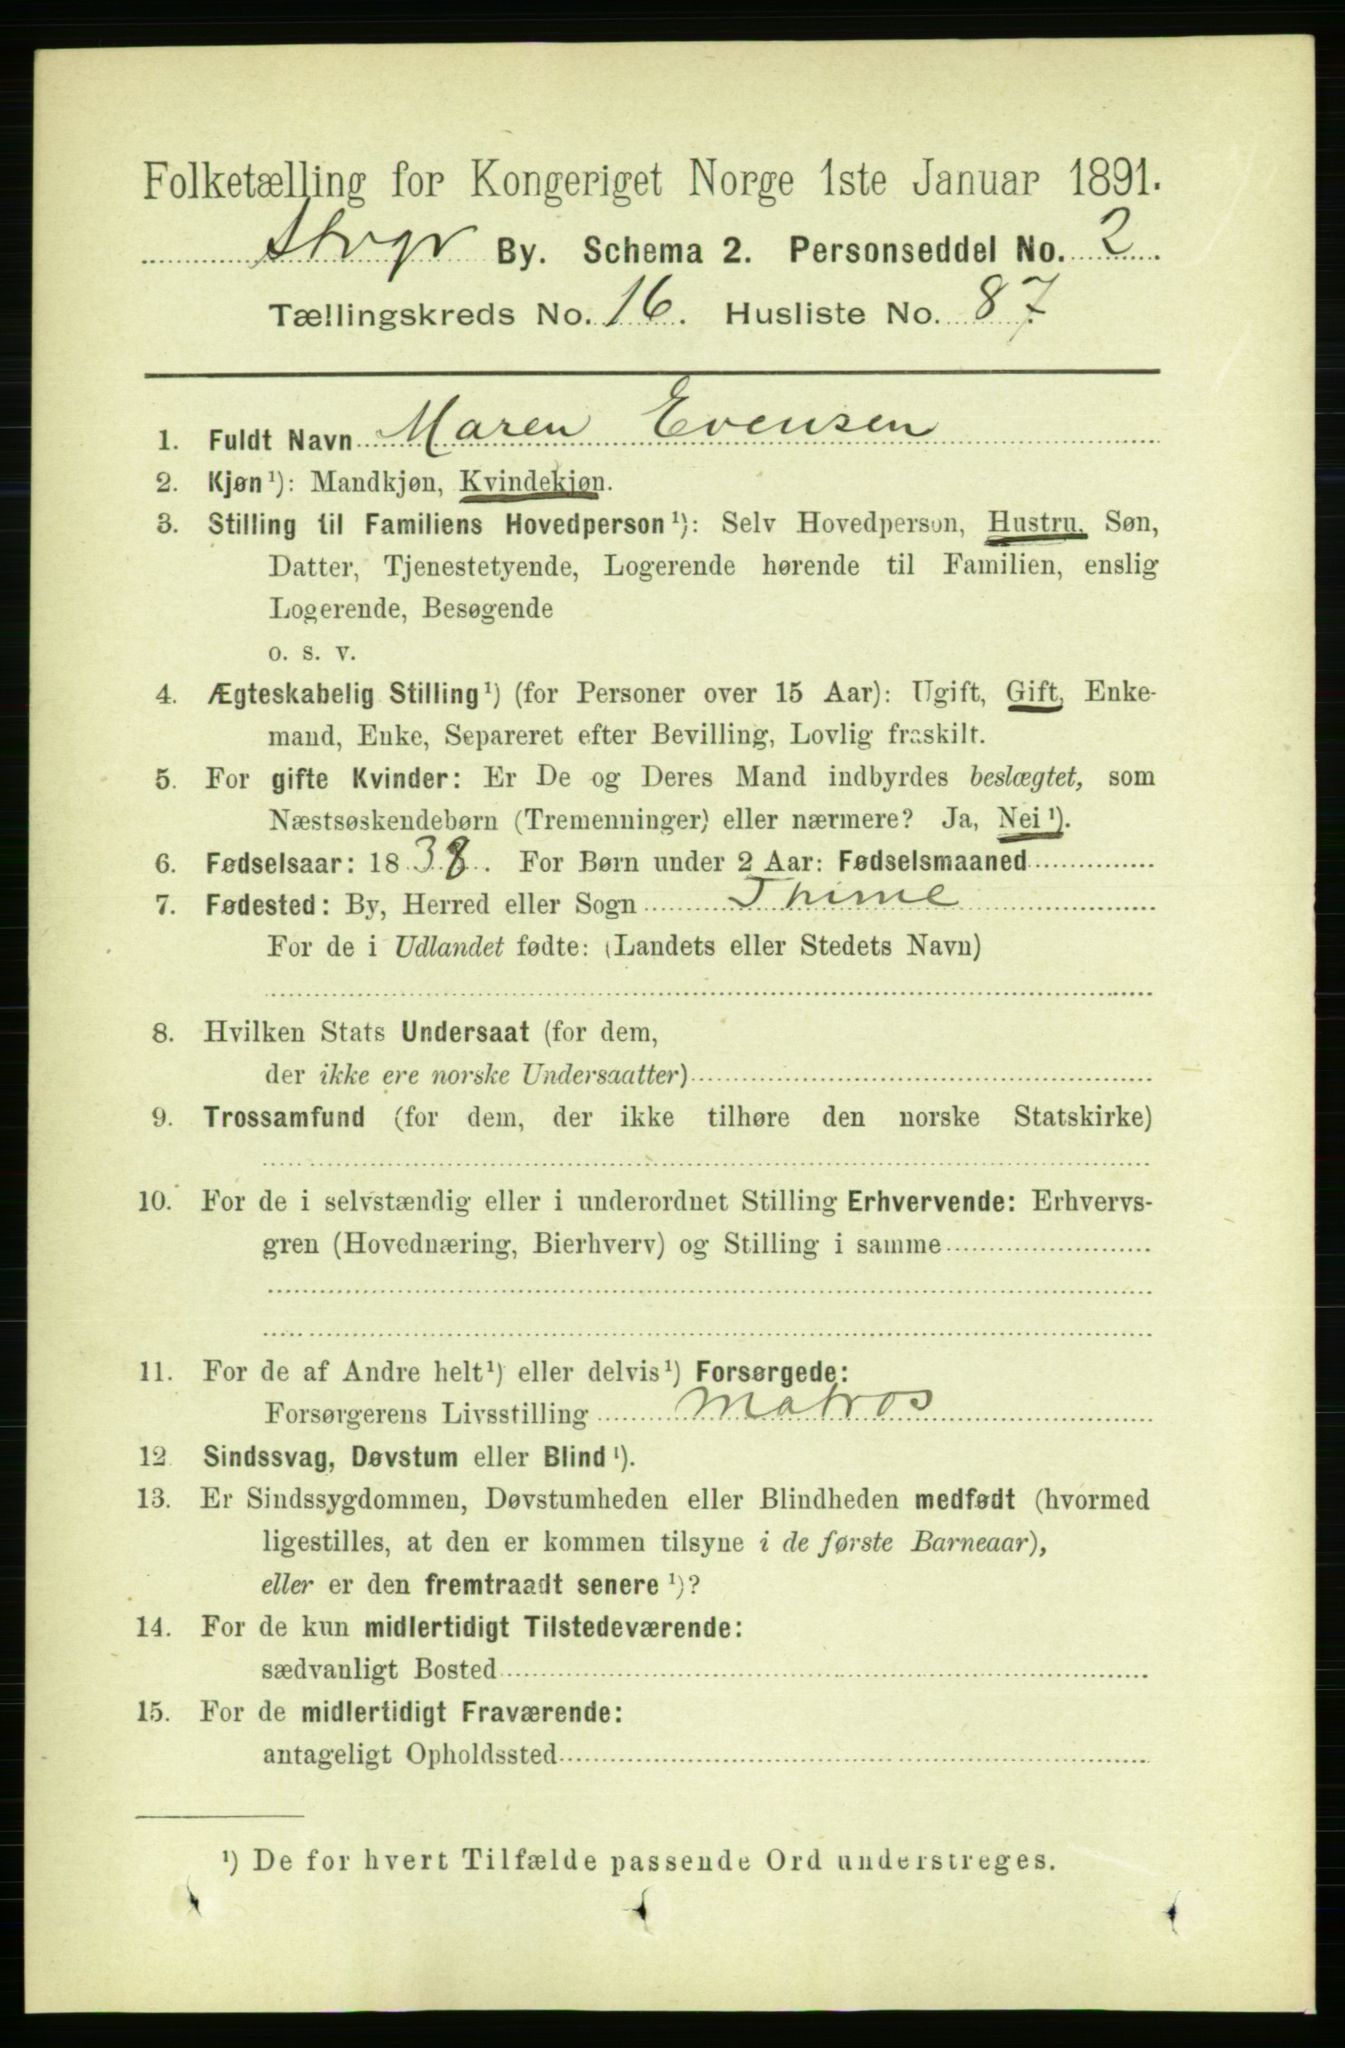 Folketælling for Kongeriget Norge 1ste Januar 1891.
Stvgr By. Schema 2. Personseddel No. 2.
Tællingskreds No. 16. Husliste No. 87
1. Fuldt Navn Maren Evensen
2. Kjøn¹): Mandkjøn, Kvindekjøn.
3. Stilling til Familiens Hovedperson¹): Selv Hovedperson, Hustru, Søn,
Datter, Tjenestetyende, Logerende hørende til Familien, enslig
Logerende, Besøgende
o. s. v.
4. Ægteskabelig Stilling¹) (for Personer over 15 Aar): Ugift, Gift, Enke-
mand, Enke, Separeret efter Bevilling, Lovlig fraskilt.
5. For gifte Kvinder: Er De og Deres Mand indbyrdes beslægtet, som
Næstsøskendebørn (Tremenninger) eller nærmere? Ja, Nei¹).
6. Fødselsaar: 1838. For Børn under 2 Aar: Fødselsmaaned
7. Fødested: By, Herred eller Sogn Thime
For de i Udlandet fødte: (Landets eller Stedets Navn)
8. Hvilken Stats Undersaat (for dem,
der ikke ere norske Undersaatter)
9. Trossamfund (for dem, der ikke tilhøre den norske Statskirke)
10. For de i selvstændig eller i underordnet Stilling Erhvervende: Erhvervs-
gren (Hovednæring, Bierhverv) og Stilling i samme
11. For de af Andre helt¹) eller delvis¹) Forsørgede:
Forsørgerens Livsstilling Matros
12. Sindssvag, Døvstum eller Blind¹).
13. Er Sindssygdommen, Døvstumheden eller Blindheden medfødt (hvormed
ligestilles, at den er kommen tilsyne i de første Barneaar),
eller er den fremtraadt senere¹)?
14. For de kun midlertidigt Tilstedeværende:
sædvanligt Bosted
15. For de midlertidigt Fraværende:
antageligt Opholdssted
¹) De for hvert Tilfælde passende Ord understreges.